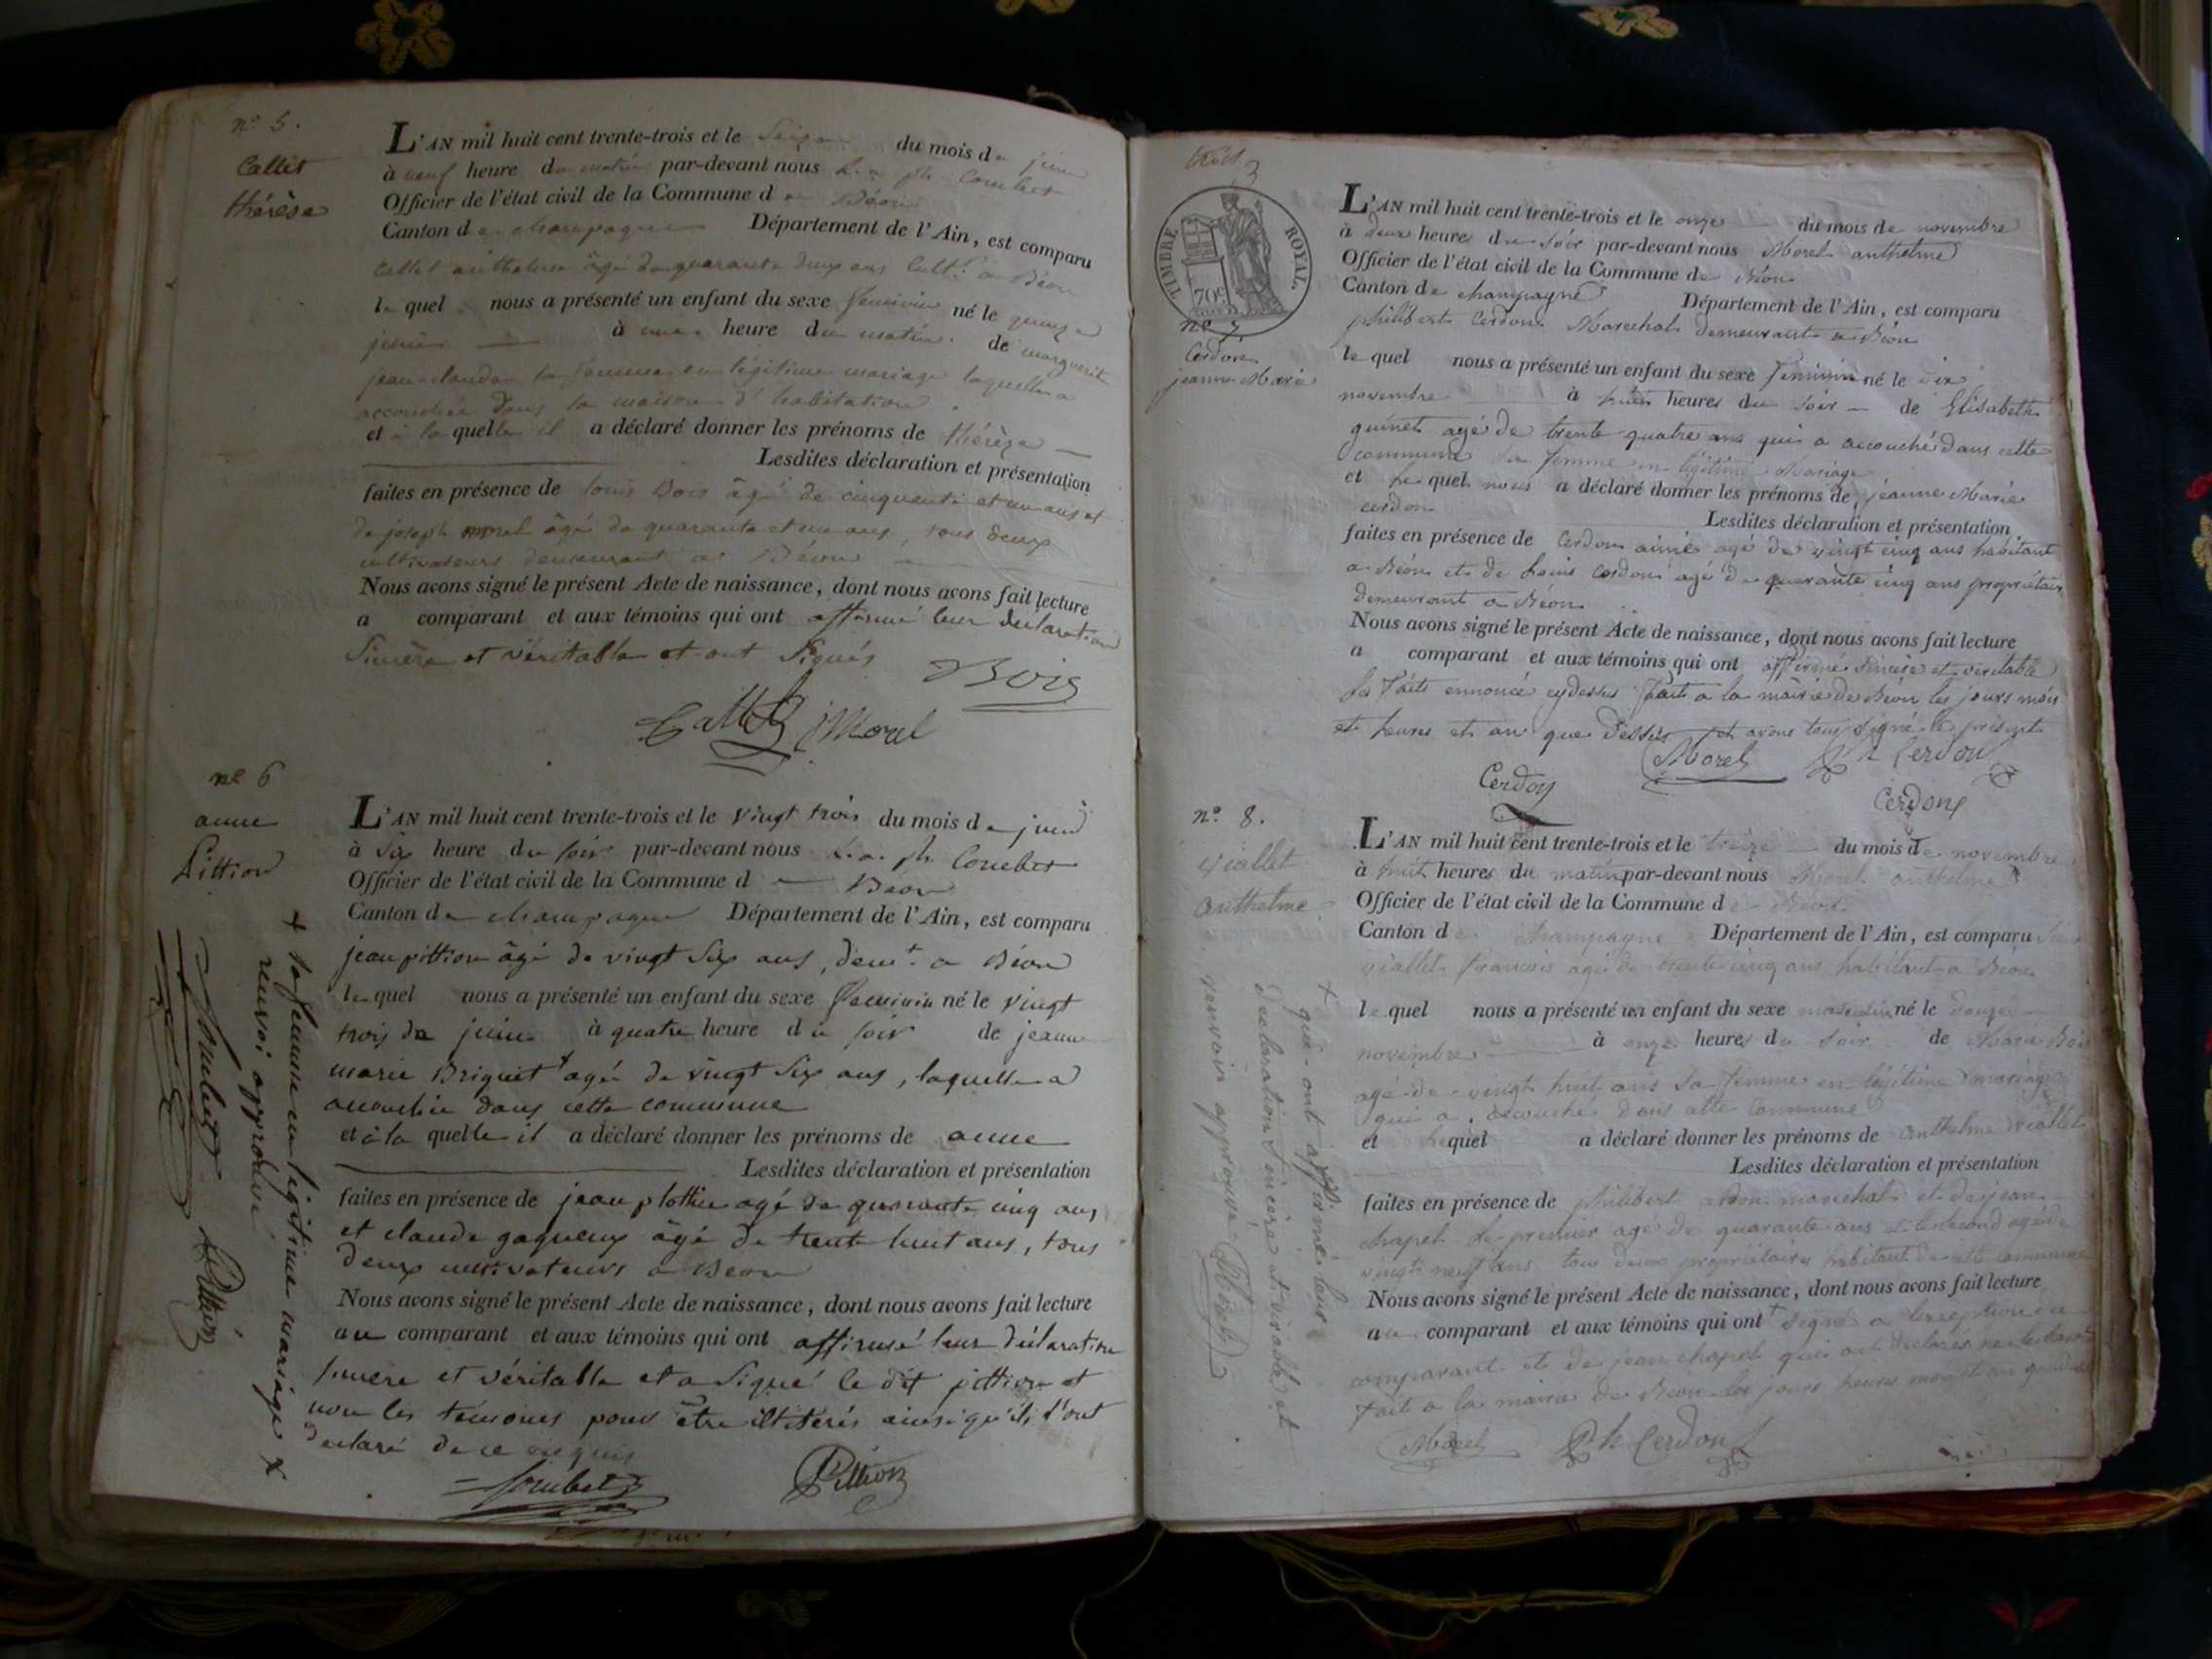 n° 5.
Callet
thérèse
L'AN mil huit cent trente-trois et le Seize du mois de juin
à neuf heure du matin par-devant nous L. a. ph. Coucbet
Officier de l'état civil de la Commune de Béon
Canton de champagne Département de l'Ain, est comparu
callet anthelme âgé de quarante deux ans cult.r a Béon
lequel nous a présenté un enfant du sexe féminin né le quinze
juin à une heure du matin de marguerite
jean-claude sa femme en légitime mariage laquelle a
accouchée dans sa maison d'habitation
et à laquelle il a déclaré donner les prénoms de thérèze
Lesdites déclaration et présentation
faites en présence de louis Bois âgé de cinquante et un ans et
de joseph morel âgé de quarante et un ans, tous deux
cultivateurs demeurant a Béon
Nous avons signé le présent Acte de naissance, dont nous avons fait lecture
a comparant et aux témoins qui ont affirmé leur declaration
Sincère et véritable et ont Signés
Bois
Callet jMorel
n° 6
anne
Pittion
L'AN mil huit cent trente-trois et le vingt trois du mois de juin
à Six heure du soir par-devant nous L. a. ph.
Officier de l'état civil de la Commune d Béon
Canton de champagne Département de l'Ain, est comparu
jean pittion âgé de vingt Six ans, dem.t a Béon
lequel nous a présenté un enfant du sexe féminin né le vingt
trois de juin à quatre heure du soir de jeanne
marie Briguet + agée de vingt Six ans, laquelle a
accouchée dans cette commune
et à laquelle il a déclaré donner les prénoms de anne
Lesdites déclaration et présentation
faites en présence de jean plottier agé de quarante cinq ans
et claude gaqueux âgé de trente huit ans, tous
deux cultivateurs a Beon
Nous avons signé le présent Acte de naissance, dont nous avons fait lecture
au comparant et aux témoins qui ont affirmé leur déclaration
sincère et véritable et a Signé le dit pittion et
non les témoins pour être illitérés ainsi qu'ils l'ont
declaré de ce requis
Pittion
+ sa femme en légitime mariage x
renvoi approuvé
Pittion
trois
3
TIMBRE ROYAL
70c
n° 7
Cerdon
jeanne Marie
L'AN mil huit cent trente-trois et le onze du mois de novembre
à deux heures du soir par-devant nous Morel anthelme
Officier de l'état civil de la Commune de Béon
Canton de champagne Département de l'Ain, est comparu
philibert Cerdon Marechal demeurant a Béon
lequel nous a présenté un enfant du sexe feminin né le dix
novembre à huit heures du soir de Elisabeth
guinet agé de trente quatre ans qui a accouché dans cette
commune sa femme en légitime Mariage
et lequel nous a déclaré donner les prénoms de jeanne Marie
cerdon Lesdites déclaration et présentation
faites en présence de Cerdon aimé agé de vingt cinq ans habitant
a Béon et de Louis cerdon agé de quarante cinq ans propriétaire
demeurant a Béon
Nous avons signé le présent Acte de naissance, dont nous avons fait lecture
a comparant et aux témoins qui ont affirmé sincère et veritable
les faits ennoncé cydessus fait a la mairie de Béon les jours mois
et heures et an que dessus et avons tous signé le présent
Morel Ph Cerdon
Cerdon
Cerdon
n° 8.
Viallet
anthelme
L'AN mil huit cent trente-trois et le treize du mois de novembre
à huit heures du matin par-devant nous Morel anthelme
Officier de l'état civil de la Commune de Béon
Canton de champagne Département de l'Ain, est comparu
viallet francois agé de trente cinq ans habitant a Béon
lequel nous a présenté un enfant du sexe masculin né le douze
novembre à onze heures du soir de Marie Bois
agé de vingt huit ans sa femme en légitime mariage
qui a accouché dans cette commune
et lequel a déclaré donner les prénoms de anthelme viallet
Lesdites déclaration et présentation
faites en présence de philibert cerdon marechal et de jean
chapel le premier agé de quarante ans et le second agé de
vingt neuf ans tous deux propriétaires habitant de cette commune
Nous avons signé le présent Acte de naissance, dont nous avons fait lecture
au comparant et aux témoins qui ont + signé a l'exception du
comparant et de jean chapel qui ont declarés ne le savoir
fait a la mairie de Béon les jours heures mois et an que dessus
Morel Ph Cerdon
+ qui ont affirmé leur
declaration sincère et virable et
renvoir approuvé Morel